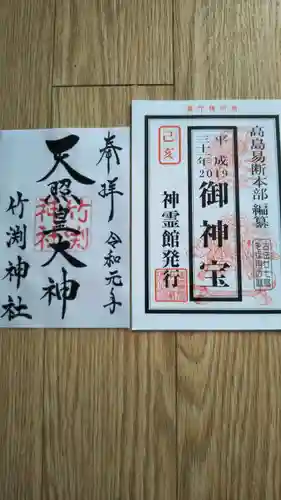 奉拝
令和元年
天照皇大神
竹渕
神社
竹渕神社
高島易断本部編纂
己亥
平成
三十一年
2019
御神宝
神霊館発行